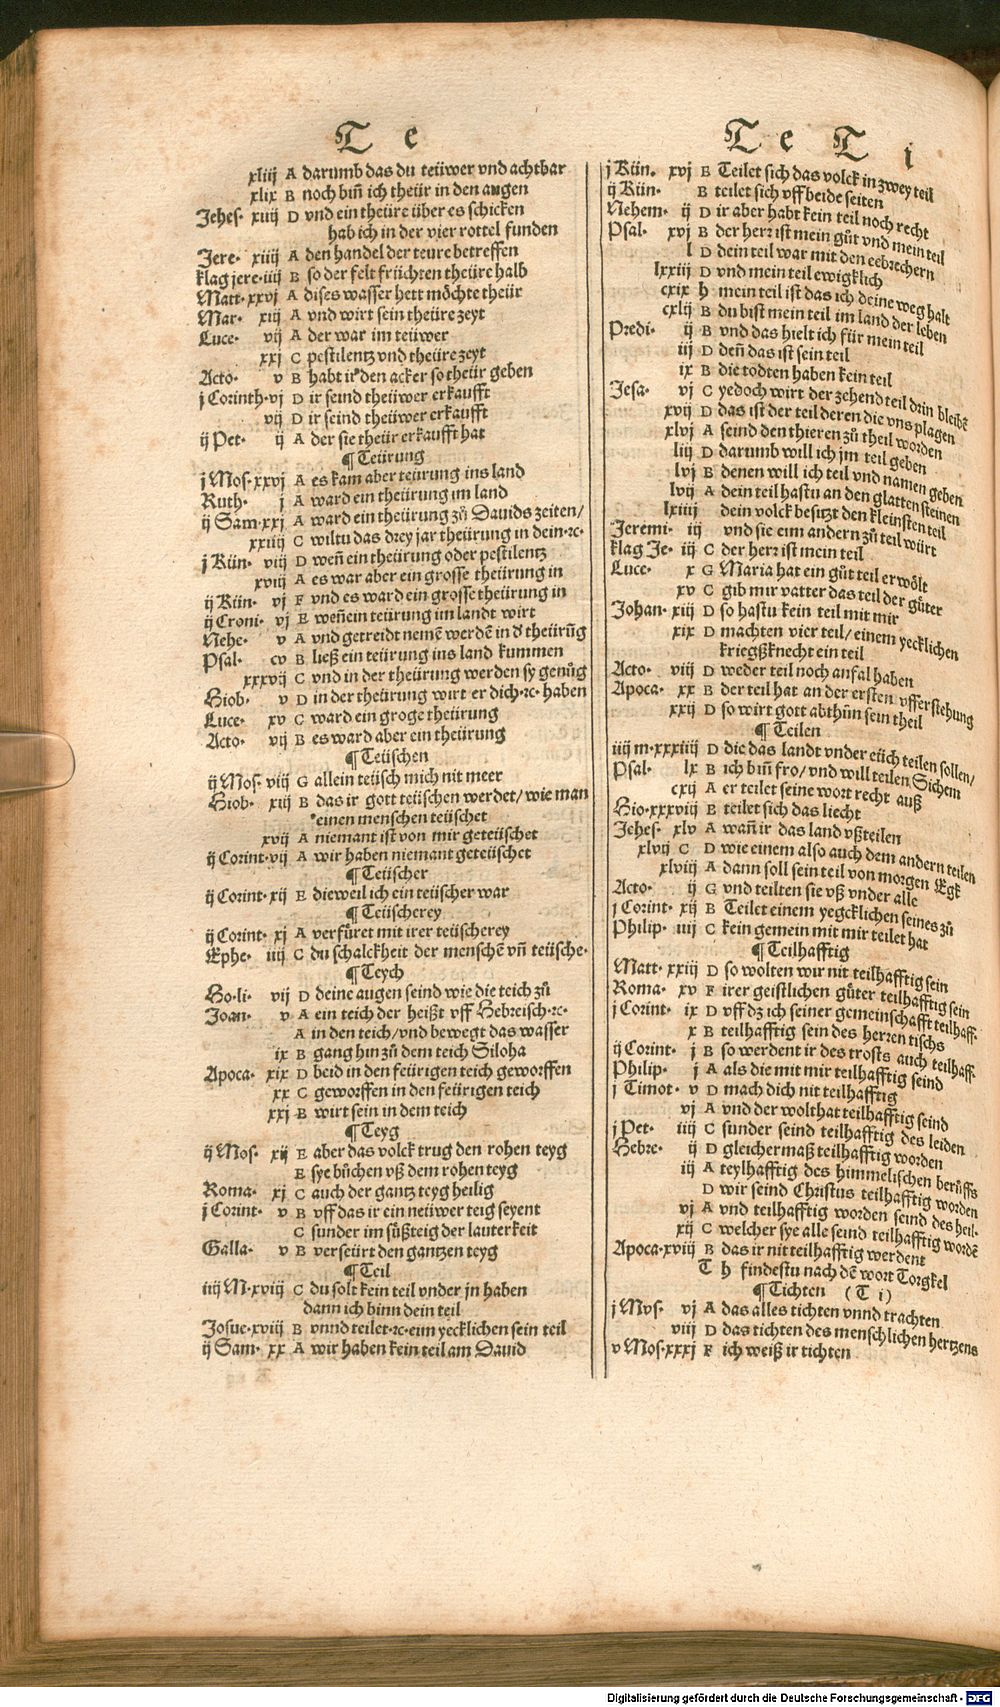 T e
xliij A darumb das du teüwer vnd achtbar
xlix B noch biñ ich theür in den augen
Jehes· xiiij D vnd ein theüre über es schicken
hab ich in der vier rottel funden
Jere· xiiij A den handel der teure betreffen
klag jere·iiij B so der felt früchten theüre halb
Matt·xxvj A dises wasser hett möchte theür
Mar· xiij A vnd wirt sein theüre zeyt
Luce· vij A der war im teüwer
xxj C pestilentz vnd theüre zeyt
Acto· v B habt ir den acker so theür geben
j Corinth·vj D ir seind theüwer erkaufft
vij D ir seind theüwer erkaufft
ij Pet· ij A der sie theür erkaufft hat
¶Teürung
j Mos·xxvj A es kam aber teürung ins land
Ruth· j A ward ein theürung im land
ij Sam·xxj A ward ein theürung zů Dauids zeiten/
xxiiij C wiltu das drey jar theürung in dein·⁊c·
j Kün· viij D weñ ein theürung oder pestilentz
xviij A es war aber ein grosse theürung in
ij Kün· vj F vnd es ward ein grosse theürung in
ij Croni· vj E weñ ein teürung im landt wirt
Nehe· v A vnd getreidt nemē werdē in d' theürūg
Psal· cv B ließ ein teürung ins land kummen
xxxvij C vnd in der theürung werden sy genůg
Hiob· v D in der theürung wirt er dich·⁊c· haben
Luce· xv C ward ein groge theürung
Acto· vij B es ward aber ein theürung
¶Teüschen
ij Mos· viij G allein teüsch mich nit meer
Hiob· xiij B das ir gott teüschen werdet/ wie man
einen menschen teüschet
xvij A niemant ist von mir geteüschet
ij Corint·vij A wir haben niemant geteüschet
¶Teüscher
ij Corint· xij E dieweil ich ein teüscher war
¶Teüscherey
ij Corint· xj A verfüret mit irer teüscherey
Ephe· iiij C du schalckheit der menschē vñ teüsche·
¶Teych
Ho·li· vij D deine augen seind wie die teich zů
Joan· v A ein teich der heißt vff Hebreisch·⁊c·
A in den teich/vnd bewegt das wasser
ix B gang hin zů dem teich Siloha
Apoca· xix D beid in den feürigen teich geworffen
xx C geworffen in den feürigen teich
xxj B wirt sein in dem teich
¶Teyg
ij Mos· xij E aber das volck trug den rohen teyg
E sye bůchen vß dem rohen teyg
Roma· xj C auch der gantz teyg heilig
j Corint· v B vff das ir ein neüwer teig seyent
C sunder im süßteig der lauterkeit
Galla· v B verseürt den gantzen teyg
¶Teil
iiij M·xviij C du solt kein teil vnder jn haben
dann ich binn dein teil
Josue·xviij B vnnd teilet·⁊c·eim yecklichen sein teil
ij Sam· xx A wir haben kein teil am Dauid
T e T i
j Kün· xvj E Teilet sich das volck in zwey teil
ij Kün· B teilet sich vff beide seiten
Nehem· ij D ir aber habt kein teil noch recht
Psal· xvj B der herr ist mein gůt vnd mein teil
l D dein teil war mit den eebrechern
lxxiij D vnd mein teil ewigklich
cxix h mein teil ist das ich deine weg halt
cxlij B du bist mein teil im land der leben
Predi· ij B vnd das hielt ich für mein teil
iij D deñ das ist sein teil
ix B die todten haben kein teil
Jesa· vj C yedoch wirt der zehend teil drin bleibē
xvij D das ist der teil deren die vns plagen
xlvj A seind den thieren zů theil worden
liij D darumb will ich jm teil geben
lvj B denen will ich teil vnd namen geben
lvij A dein teil hastu an den glatten steinen
lxiiij dein volck besitzt den kleinsten teil
Jeremi· iij vnd sie eim andern zů teil würt
klag Je· iij C der herr ist mein teil
Luce· x G Maria hat ein gůt teil erwölt
xv C gib mir vatter das teil der güter
Johan· xiij D so hastu kein teil mit mir
xix D machten vier teil/ einem yecklichen
kriegßknecht ein teil
Acto· viij D weder teil noch anfal haben
Apoca· xx B der teil hat an der ersten vfferstehung
xxij D so wirt gott abthůn sein theil
¶Teilen
iiij m·xxxiiij D die das landt vnder eüch teilen sollen/
Psal· lx B ich biñ fro/ vnd will teilen Sichem
cxij A er teilet seine wort recht auß
Hio·xxxviij E teilet sich das liecht
Jehes· xlv A wañ ir das land vßteilen
xlvij C D wie einem also auch dem andern teilen
xlviij A dann soll sein teil von morgen Egk
Acto· ij G vnd teilten sie vß vnder alle
j Corint· xij B Teilet einem yegcklichen seines zů
Philip· iiij C kein gemein mit mir teilet hat
¶Teilhafftig
Matt· xxiij D so wolten wir nit teilhafftig sein
Roma· xv F irer geistlichen güter teilhafftig sein
j Corint· ix D vff dz ich seiner gemeinschafft teilhaff·
x B teilhafftig sein des herren tischs
ij Corint· j B so werdent ir des trosts auch teilhaff·
Philip· j A als die mit mir teilhafftig seind
j Timot· v D mach dich nit teilhafftig
vj A vnd der wolthat teilhafftig seind
j Pet· iiij C sunder seind teilhafftig des leiden
Hebre· ij D gleicher maß teilhafftig worden
iij A teylhafftig des himmelischen berůffs
D wir seind Christus teilhafftig worden
vj A vnd teilhafftig worden seind des heil·
xij C welcher sye alle seind teilhafftig wordē
Apoca·xviij B das ir nit teilhafftig werdent
T h findestu nach dē wort Torgkel
¶Tichten (T i)
j Mos· vj A das alles tichten vnnd trachten
viij D das tichten des menschlichen hertzens
v Mos·xxxj F ich weiß ir tichten
Digitalisierung gefördert durch die Deutsche Forschungsgemeinschaft - DFG